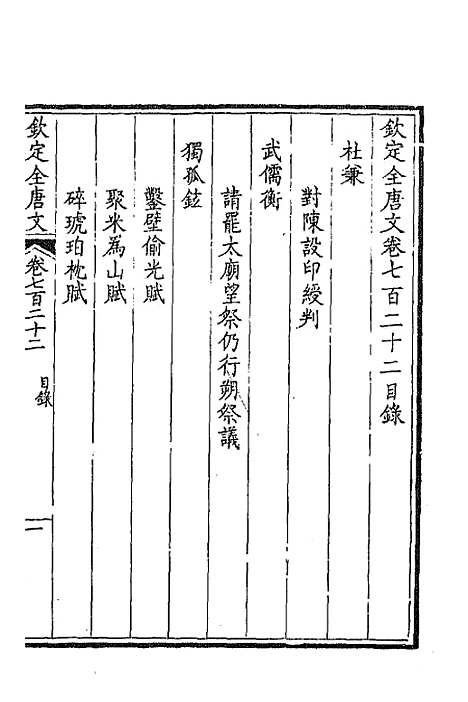 欽定全唐文卷七百二十二目錄
杜兼
對陳設印綬判
武儒衡
請罷太廟望祭仍行朔祭議
獨孤鉉
鑿壁偷光賦
聚米為山賦
碎琥珀枕賦
欽定全唐文 卷七百二十二 目錄 一